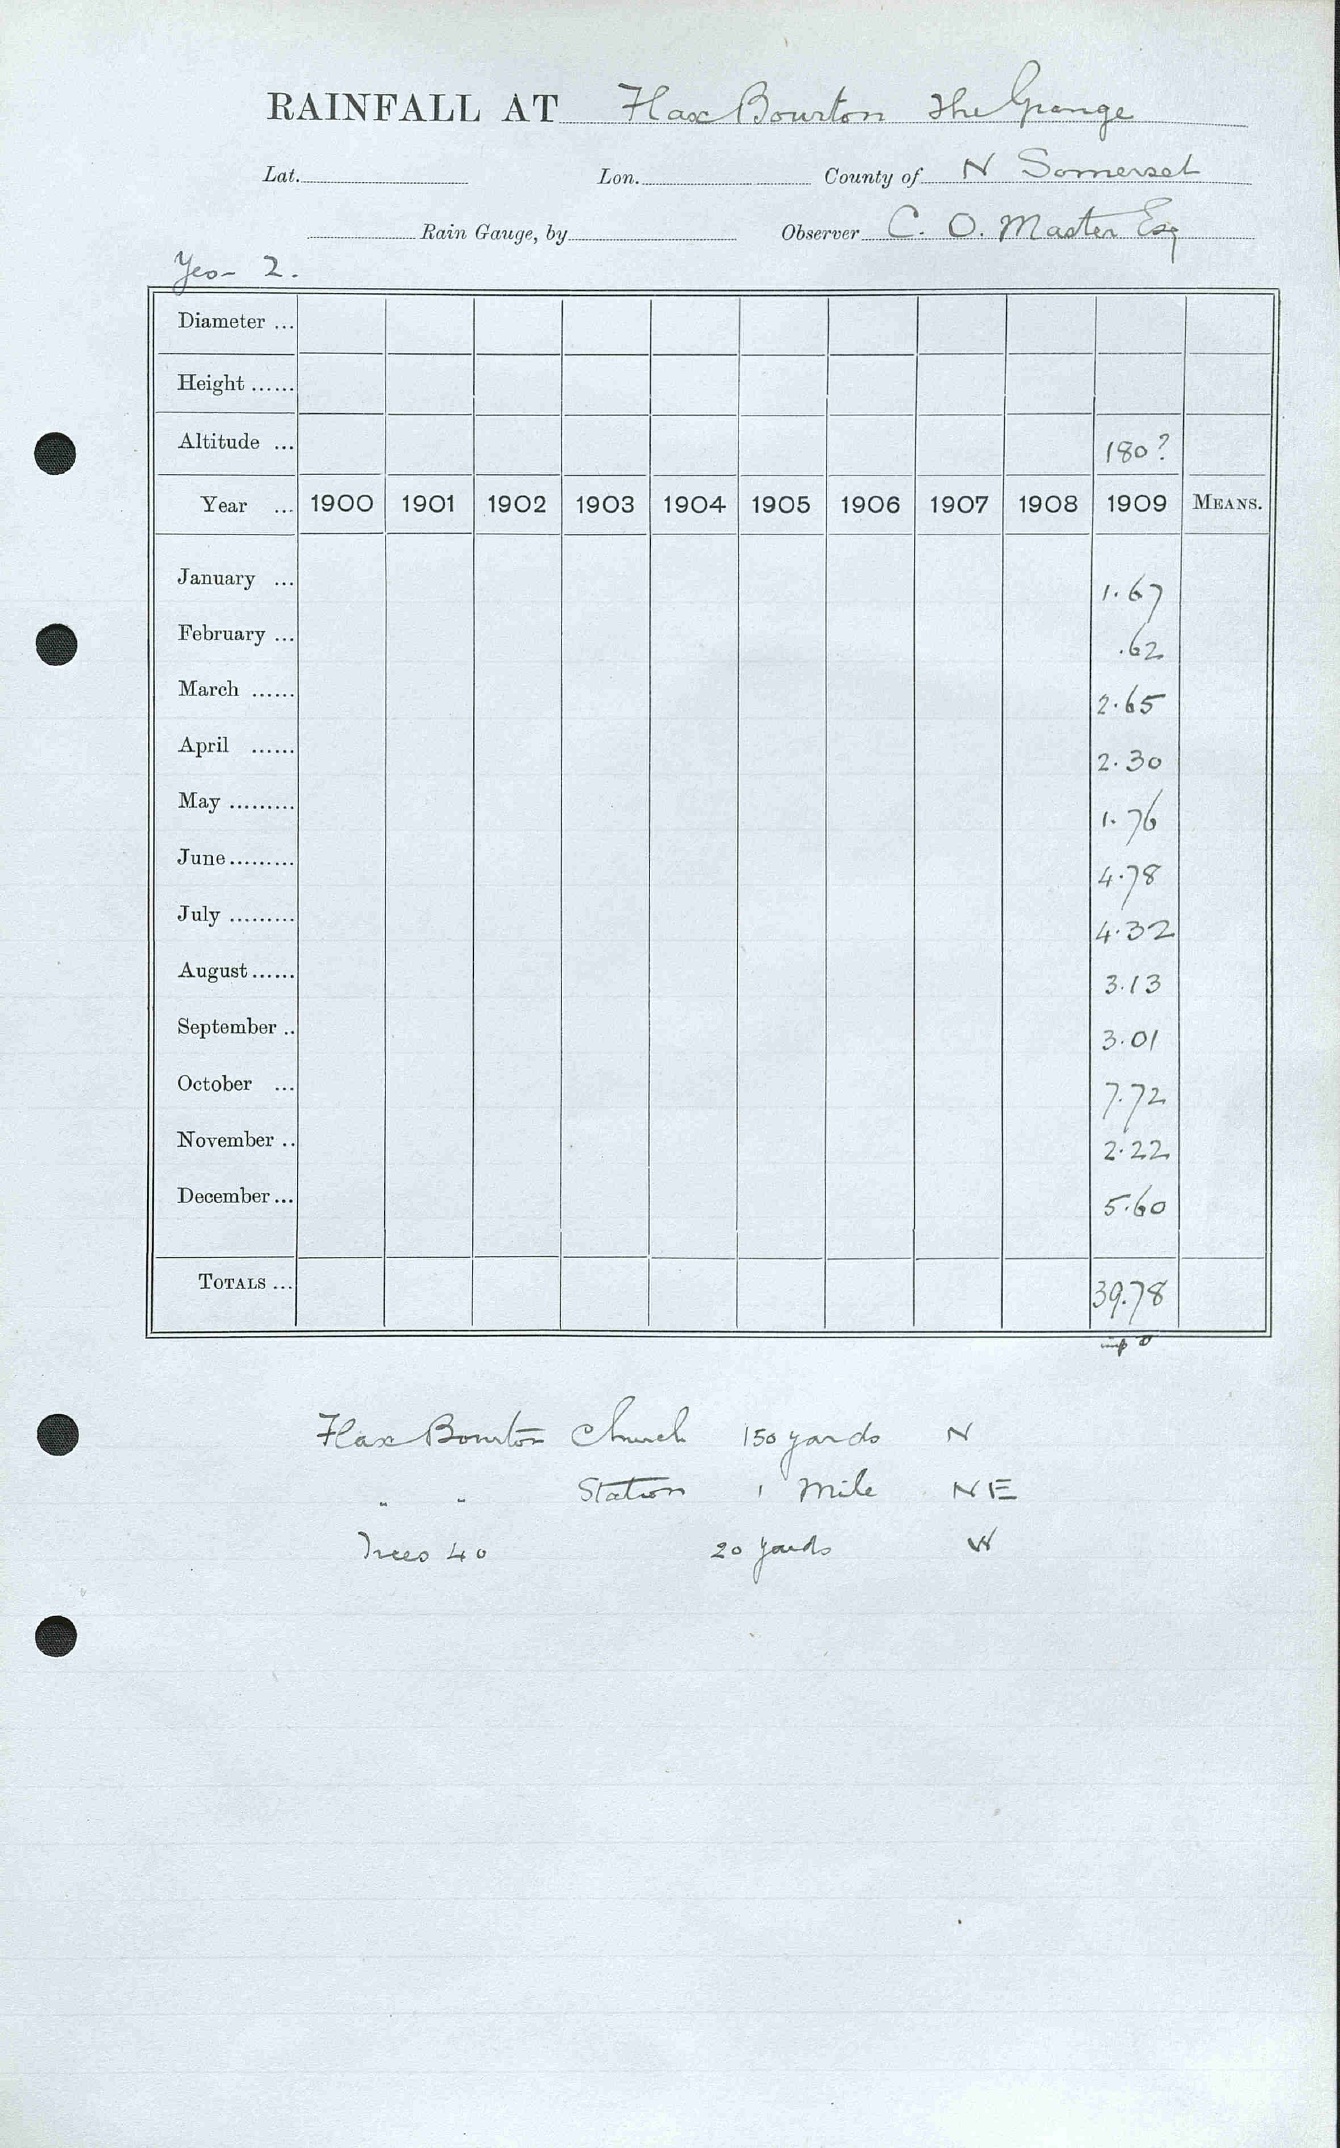 RAINFALL AT Flax Bourton The Grange
Lat. Lon. County of N Somerset
Rain Gauge, by Observer C. O. Master Esq
Yeo - 2.
Diameter ...
Height ......
Altitude ... 180?
Year ... 1900 1901 1902 1903 1904 1905 1906 1907 1908 1909 MEANS.
January ... 1.67
February ... .62
March ...... 2.65
April ...... 2.30
May ......... 1.76
June ......... 4.78
July ......... 4.32
August ...... 3.13
September .. 3.01
October ... 7.72
November .. 2.22
December ... 5.60
TOTALS ... 39.78
Flax Bourton Church 150 yards N
" " Station 1 Mile NE
Trees 40 20 yards W